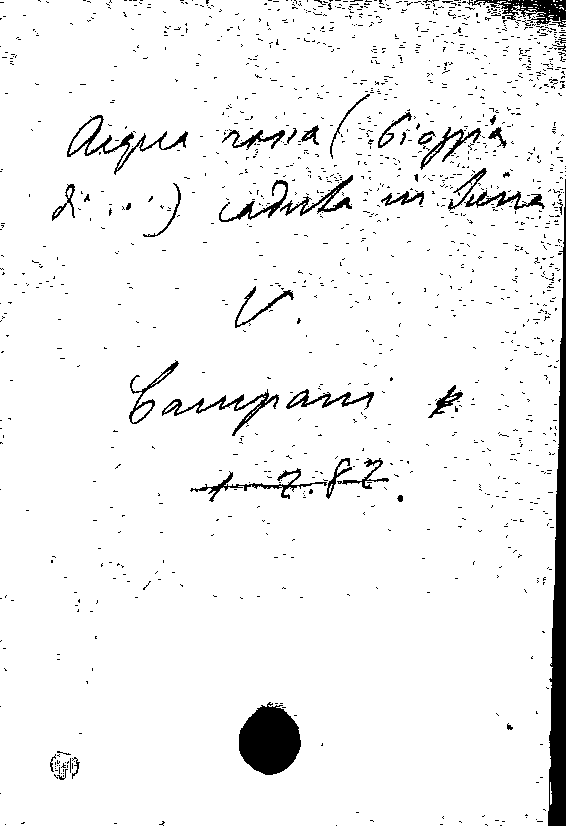 Acqua rossa ( Pioggia
di ... ) caduta in Siena
V.
Campani